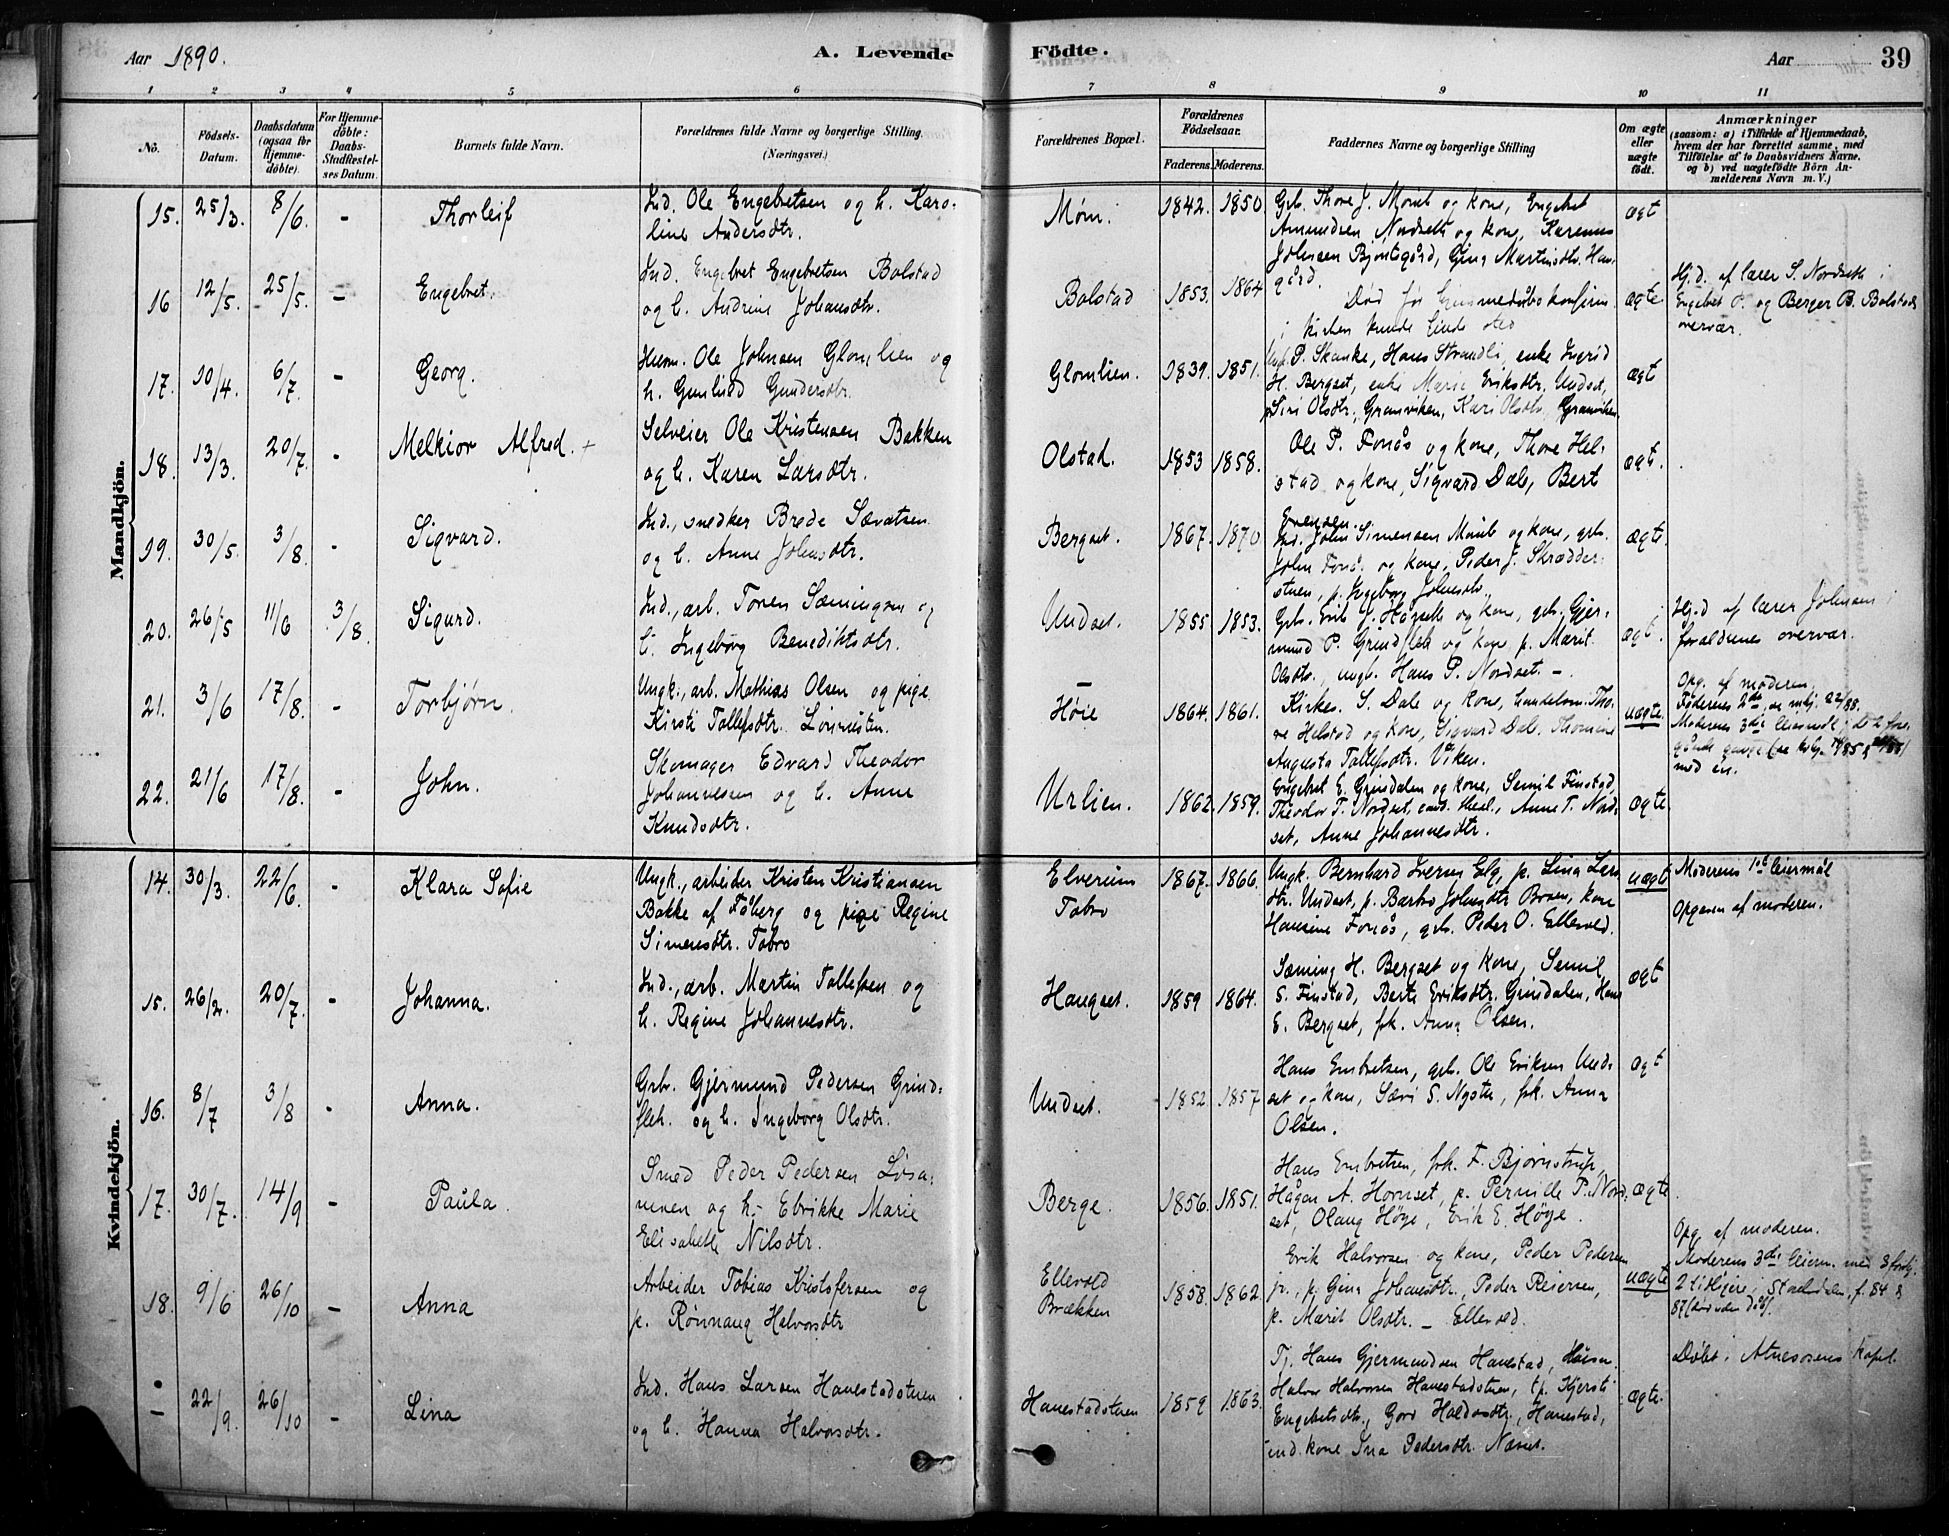 Aar 1890. A. Levende Födte. Aar 39
1 2 3 4 5 6 7 8 9 10 11
No. Födsels-Datum. Daabsdatum (ogsaa for Hjemmedöbte). For Hjemmedöbte: Daabs-Stadfæstelses Datum. Barnets fulde Navn. Forældrenes fulde Navne og borgerlige Stilling. (Næringsvei.) Forældrenes Bopæl. Forældrenes Födselsaar. Faderens. Moderens. Faddernes Navne og borgerlige Stilling Om ægte eller uægte födt. Anmærkninger (saasom: a) i Tilfælde af Hjemmedaab, hvem der har forrettet samme, med Tilföielse af to Daabsvidners Navne, og b) ved uægtefödte Börn Anmelderens Navn m. V.)
Mandkjön.
15. 25/3. 8/6. - Thorleif
Ind. Ole Engebretsen og h. Karo-
line Andersdtr.
Møm. 1842. 1850.
Grb. Thore J. Mömb og kone, Engebret
Amundsen Nordseth og kone, Karenus
Johnsen Bjontegård, Gina Martinsdtr. Hau-
gård.
ægt
16 12/5. 25/5. - Engebret.
Ind. Engebret Engebretsen Bolstad
og h. Andrine Johansdtr.
Bolstad 1853. 1864
Död før hjemmedåbs konfirm.
i kirken kunde finde sted
ægte
Hj.d. af lærer S. Nordseth i
Engebret P. og Berger B. Bolstads
overvær.
17. 10/4. 6/7. - Georg.
Husm. Ole Johnsen Glomlien og
h. Gunhild Gundersdtr.
Glomlien. 1839. 1851.
P. Skanke, Hans Strandli, enke Ingrid
H. Bergset, enke Marie Eriksdtr. Undset,
Siri Olsdtr. Granviken, Kari Olsdtr. Granviken
ægt
18. 13/3. 20/7. - Melkior Alfred. +
Selveier Ole Kristensen Bakken
og h. Karen Larsdtr.
Olstad. 1853 1858.
Ole P. Fonås og kone, Thore Hel-
stad og kone, Sigvard Dale, Bert
Evensen.
ægt.
19. 30/5. 3/8. - Sigvard.
Ind., snedker Brede Sævatsen
og h. Anne Johnsdtr.
Bergset. 1867. 1870
Ind. John Simensen Mömb og kone, grb.
John Fonås og kone, Peder J. Skrædder-
stuen, p. Ingeborg Johnsdtr.
ægte.
20. 26/5 11/6 3/8. Sigurd.
Ind., arb. Tonen Sæmingsen og
h. Ingeborg Benediktsdtr.
Undset. 1855 1853.
Grb. Erik J. Högseth og kone, grb. Gjer-
mund P. Grindfleh og kone, p. Marit
Olsdtr., ungk. Hans P. Nordset. -
ægt.
Hj.d af lærer Johnsen i
forældrenes overvær.
21. 3/6 17/8. - Torbjørn.
Ungk., arb. Mathias Olsen og pige
Kirsti Tollefsdtr.
Höie 1864. 1861.
Kirkes. S. Dale og kone, handelsm. Tho-
re Helstad og kone, Sigvard Dale, Thomine
Augusta Tollefsdtr. Viken.
uægte.
Opg. af moderen.
Faderens 2det, og
Moderens 3die leiermål
med én.
22. 21/6 17/8. - John.
Skomager Edvard Theodor
Johannessen og h. Anne
Knudsdtr.
Urlien. 1862. 1859.
Engebret E. Grindalen og kone, Semil Finstad,
Theodor T. Nordset, Anne T. Nord-
set, Anne Johannesdtr.
ægte
Kvindekjön.
14. 30/3. 22/6. - Klara Sofie
Ungk., arbeider Kristen Kristiansen
Bakke af Fåberg og pige Regine
Simensdtr. Tobro
Elverum
Tobro
1867. 1866.
Ungk. Bernhard Iversen Elg, p. Lina Lars-
dtr. Undset, p. Barbro Johnsdtr Broen, kone
Hansine Fonås, grb. Peder O. Ellevold.
uægt
Moderens 1st leiermål
Opgaven af moderen.
15. 26/2. 20/7. - Johanna.
Ind., arb. Martin Tollefsen og
h. Regine Johannesdtr.
Haugset. 1859 1864.
Sæming H. Bergset og kone, Semil
S. Finstad, Berte Eriksdtr. Grindalen, Hans
E. Bergset, frk. Anna Olsen.
ægt
16. 8/7 3/8 - Anna.
Grbr. Gjermund Pedersen Grind-
fleh. og h. Ingeborg Olsdtr.
Undset. 1852 1857
Hans Embretsen, grb. Ole Eriksen Und-
set og kone, Særi S. Nysten, frk. Anna
Olsen.
ægt
17. 30/7. 14/9 - Paula.
Smed Peder Pedersen Løsa-
menen og h. Elvrikke Marie
Elisabeth Nilsdtr.
Berge. 1856. 1851.
Hans Embretsen, frk. F. Bjørnstrup,
Hågen A. Hornset, p. Pernille P. Nord-
set, Olaug Höye, Erik E. Höye.
ægte.
18. 9/6 26/10 - Anna
Arbeider Tobias Kristofersen og
p. Rønnaug Halvorsdtr
Ellevold
Brækken
1858. 1862.
Erik Halvorsen og kone, Peder Pedersen
jr., p. Gina Johansdtr., Peder Reiersen,
p. Marit Olsdtr. - Ellevold.
uægte
Opg. af moderen.
Moderens 3die leierm. med 3 forskj.
2 tidligere i Storelvdalen, f. 84 &
- 22/9. 26/10 - Lina
Ind. Hans Larsen Hanestadstuen
og h. Hanna Halvorsdtr.
Hanestadstuen 1859 1863.
Tj. Hans Gjermundsen Hanestad, Husm.
Halvor Halvorsen Hanestadstuen, tp. Kjersti
Engebretsdtr., Goro Haldosdtr., Hanestad,
ind. kone Ina Pedersdtr. Næset.
ægte.
Døbt i Atneosens kapel.